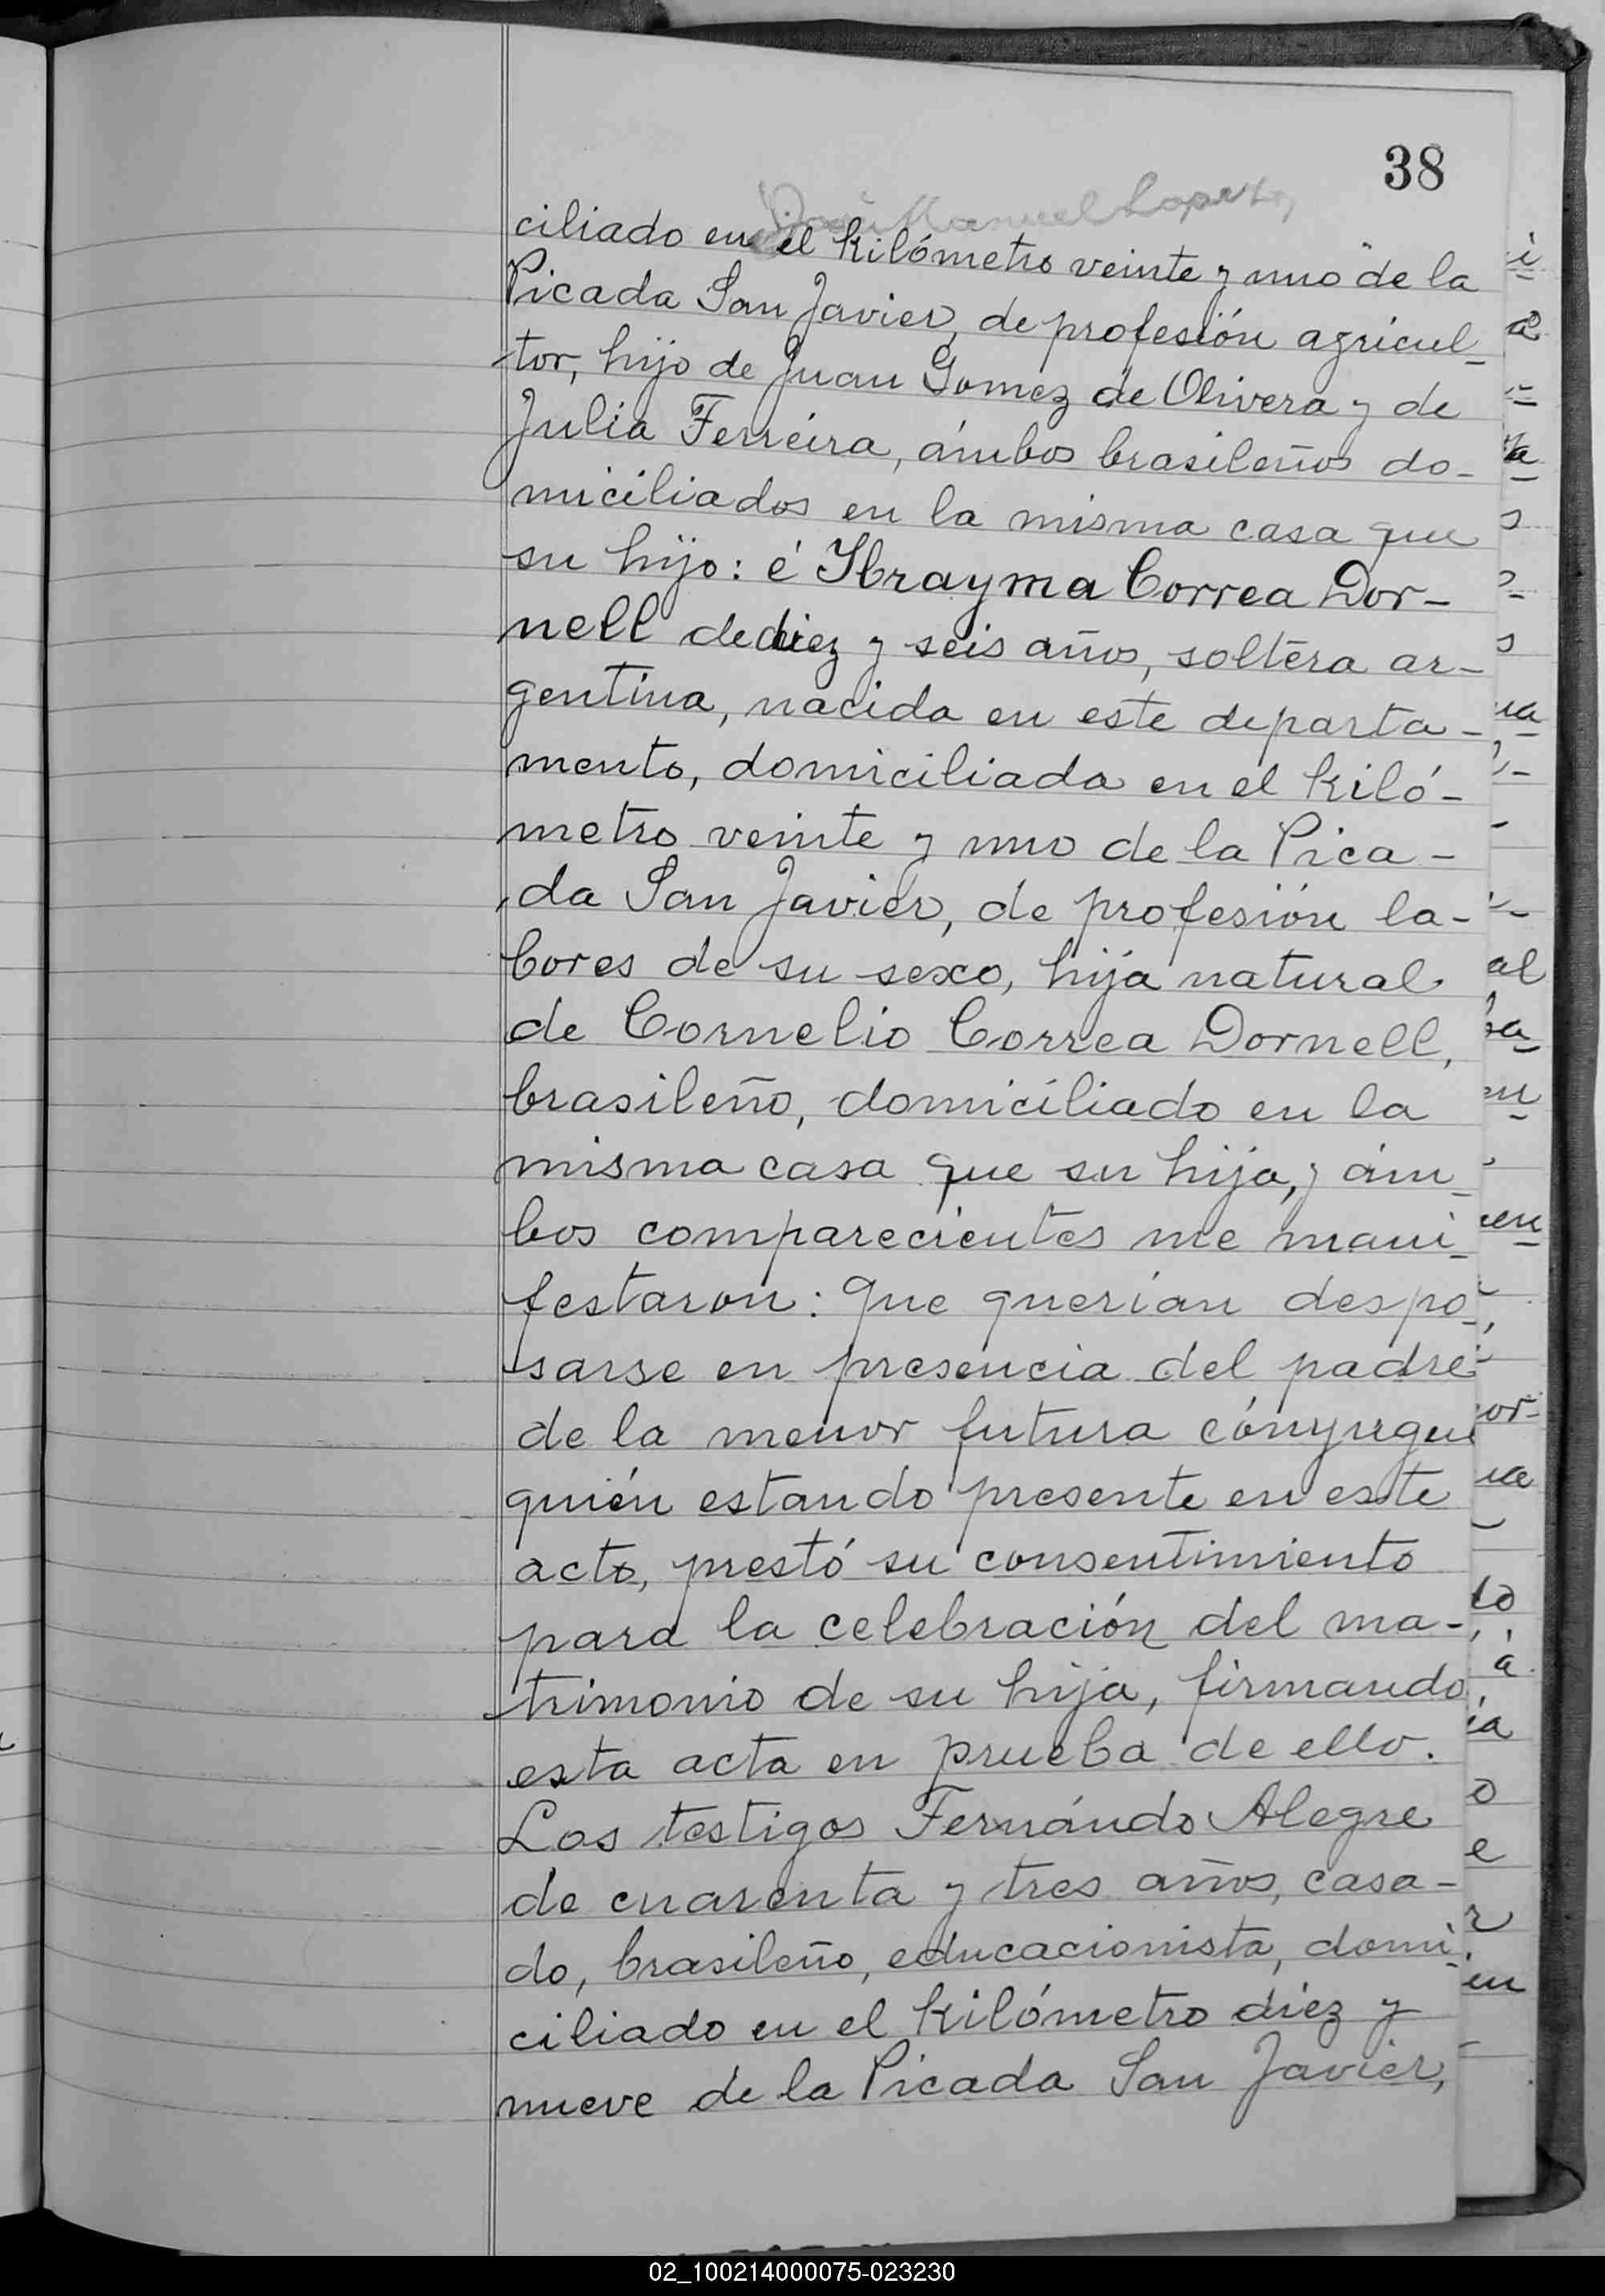 38
Manuel Lopez
ciliado en el kilómetro veinte y uno de la
Picada San Javier, de profesión agricul-
tor, hijo de Juan Gomez de Olivera y de
Julia Ferreira, ámbos brasileños do-
miciliados en la misma casa que
su hijo: é Ybrayma Correa Dor-
nell de diez y seis años, soltera ar-
gentina, nacida en este departa-
mento, domiciliada en el kiló-
metro veinte y uno de la Pica-
da San Javier, de profesión la-
bores de su sexo, hija natural
de Cornelio Correa Dornell,
brasileño, domiciliado en la
misma casa que su hija, y ám-
bos comparecientes me mani-
festaron: Que querían despo-
sarse en presencia del padre
de la menor futura cónyugue
quién estando presente en este
acto, prestó su consentimiento
para la celebración del ma-
trimonio de su hija, firmando
esta acta en prueba de ello.
Los testigos Fernándo Alegre
de cuarenta y tres años, casa-
do, brasileño, educacionista, domi-
ciliado en el kilómetro diez y
nueve de la Picada San Javier,
02_100214000075-023230